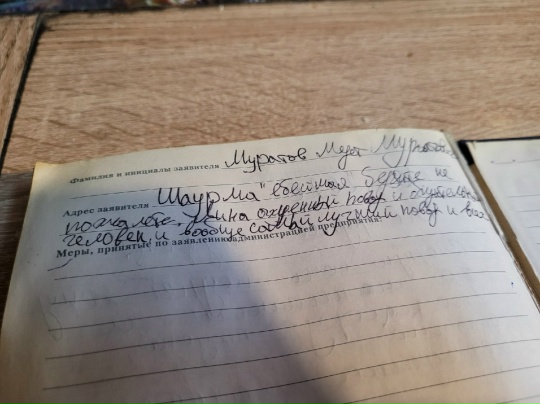 Фамилия и инициалы заявителя Муратов Муратов
Адрес заявителя Шаурма "боенмая" берите не
пожалеете. охуенный повар и
человек и вообще самый лучший повар и
Меры, принятые по заявлению администрацией предприятия: